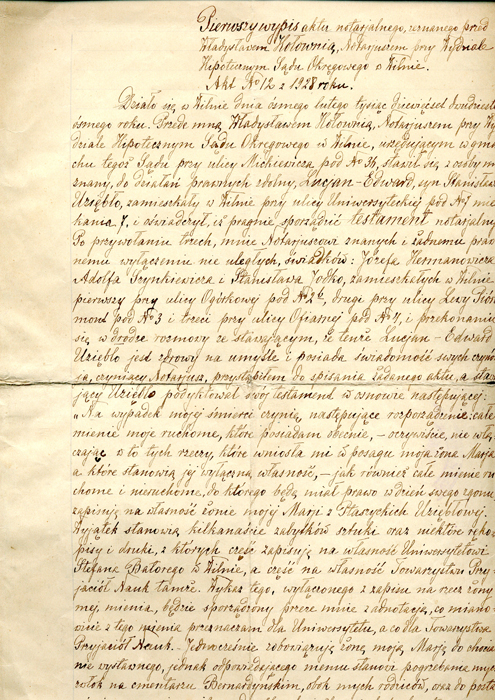 Pierwszy wypis aktu notarjalnego, zeznanego przed
Władysławem Hołownią, Notarjuszem przy Wydziale
Hipotecznym Sądu Okręgowego w Wilnie.
Akt № 12 z 1928 roku.
Działo się w Wilnie dnia ósmego lutego tysiąc dziewięćset dwudzieste
ósmego roku. Przede mną Władysławem Hołownią, Notarjuszem przy Wy
dziale Hipotecznym Sądu Okręgowego w Wilnie, urzędującym w gma
chu tegoż Sądu przy ulicy Mickiewicza pod № 36, stawił się z osoby mi
znany, do działań prawnych zdolny, Lucjan-Edward, syn Stanisława
Uziębło, zamieszkały w Wilnie przy ulicy Uniwersyteckiej pod № 7 mie
kania 7, i oświadczył, iż pragnie sporządzić testament notarjalny
Po przywołaniu trzech, mnie Notarjuszowi znanych i żadnemu praw
nemu wyłączeniu nie uległych, świadków: Józefa Hermanowicza
Adolfa Hrynkiewicza i Stanisława Jodko, zamieszkałych w Wilnie
pierwszy przy ulicy Ogórkowej pod № 2, drugi przy ulicy
pod № 3 i trzeci przy ulicy Ofiarnej pod № 4, i przekonaniu
się w drodze rozmowy ze stawającym, że tenże Lucjan-Edward
Uziębło jest zdrowy na umyśle i posiada świadomość swych czynów
ja, czyniący Notarjusz, przystąpiłem do spisania żądanego aktu, a stawa
jący Uziębło podyktował swój testament w osnowie następującej:
„Na wypadek mojej śmierci czynię następujące rozporządzenie: całe
mienie moje ruchome, które posiadam obecnie, – oczywiście, nie włą
czając w to tych rzeczy, które wniosła mi w posagu moja żona Marja
a które stanowią jej wyłączną własność, – jak również całe mienie ru
chome i nieruchome, do którego będę miał prawo w dzień swego zgonu
zapisuję na własność żonie mojej Marji z Uziębłowej.
Wyjątek stanowią kilkanaście zabytków sztuki oraz niektóre ręko
pisy i druki, z których część zapisuję na własność Uniwersytetowi
Stefana Batorego w Wilnie, a część na własność Towarzystwa Przy
jaciół Nauk tamże. Wykaz tego, wyłączonego z zapisu na rzecz żony
mej, mienia, będzie sporządzony przeze mnie z adnotacją, co miano
wicie z tego mienia przeznaczam dla Uniwersytetu, a co dla Towarzystwa
Przyjaciół Nauk. – Jednocześnie zobowiązuję żonę moją Marję do
nie wystawnego, jednak odpowiadającego memu stanowi pogrzebania mych
zwłok na cmentarzu Bernardyńskim, obok mych rodziców, oraz do